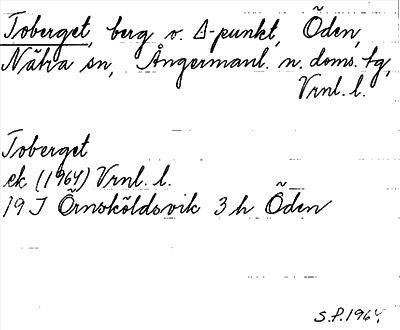 Toberget, berg o. Δ-punkt, Öden,
Nätra sn, Ångermanl. n. doms.tg,
Vrnl. l.
Toberget
ek (1964) Vrnl. l.
19 J Örnsköldsvik 3 h Öden
S.P. 1964.